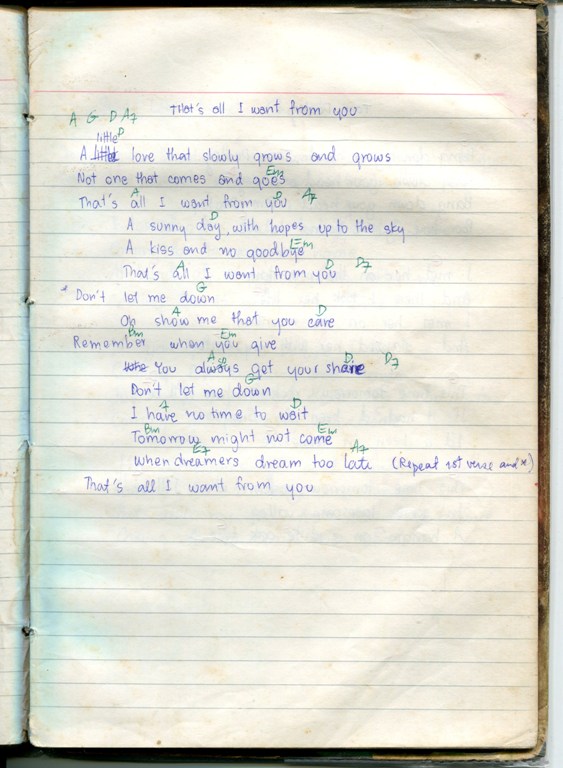 That's all I want from you
A G D A7
little D
A love that slowly grows and grows
Em
Not one that comes and goes
A D A7
That's all I want from you
D
A sunny day, with hopes up to the sky
Em
A kiss and no goodbye
A D D7
That's all I want from you
G
* Don't let me down
A D
Oh show me that you care
Bm Em
Remember when you give
A D D7
You always get your share
G
Don't let me down
A D
I have no time to wait
Bm Em
Tomorrow might not come
E7 A7
when dreamers dream too late (Repeat 1st verse and *)
That's all I want from you